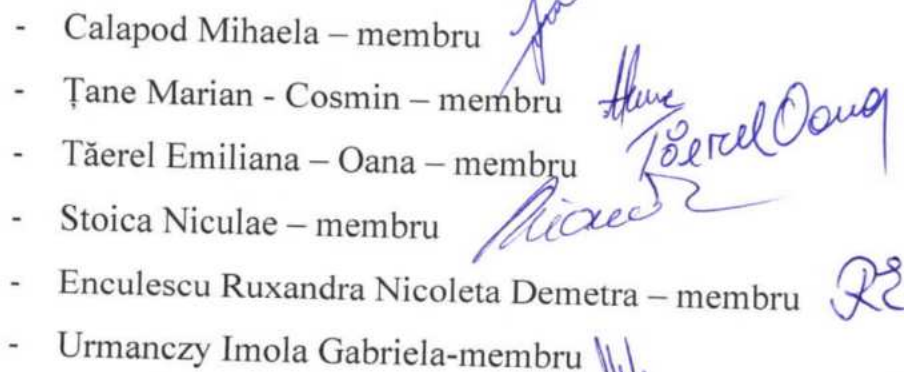 - Calapod Mihaela – membru
- Țane Marian - Cosmin – membru
- Tăerel Emiliana – Oana – membru Tăerel Oana
- Stoica Niculae – membru
- Enculescu Ruxandra Nicoleta Demetra – membru RE
- Urmanczy Imola Gabriela-membru